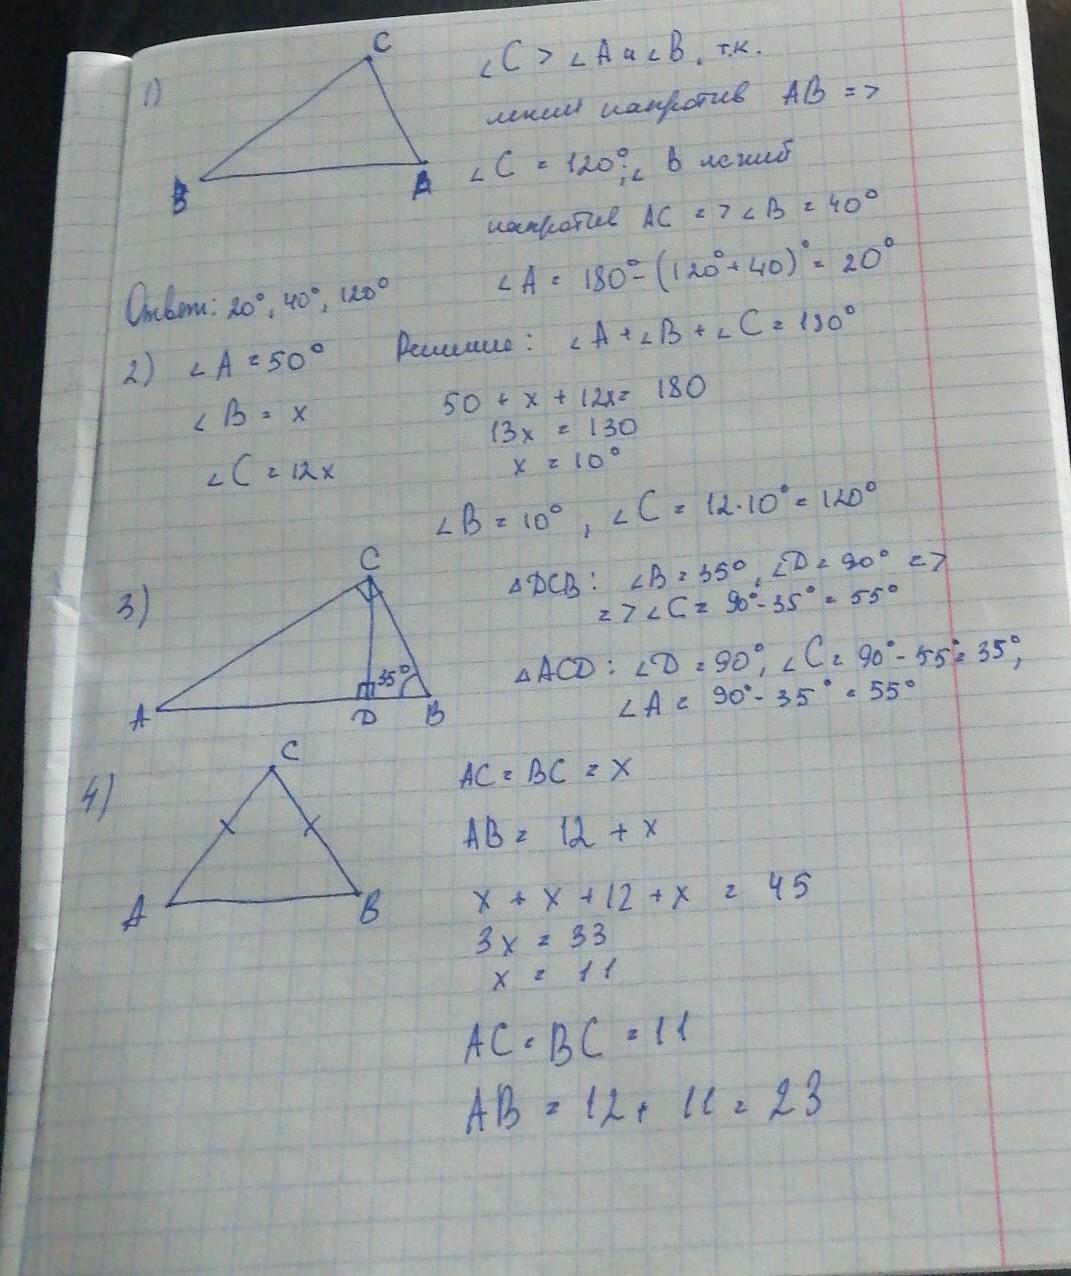 1)
C
B
A
∠C > ∠A и ∠B, т.к.
лежит напротив AB =>
∠C = 120°; ∠B лежит
напротив AC => ∠B = 40°
∠A = 180° - (120° + 40)° = 20°
Ответ: 20°, 40°, 120°
2) ∠A = 50°
∠B = x
∠C = 12x
Решение: ∠A + ∠B + ∠C = 180°
50 + x + 12x = 180
13x = 130
x = 10°
∠B = 10°, ∠C = 12·10° = 120°
3)
C
A
D
B
35°
△DCB: ∠B = 35°, ∠D = 90° =>
=> ∠C = 90° - 35° = 55°
△ACD: ∠D = 90°, ∠C = 90° - 55° = 35°,
∠A = 90° - 35° = 55°
4)
C
A
B
AC = BC = x
AB = 12 + x
x + x + 12 + x = 45
3x = 33
x = 11
AC = BC = 11
AB = 12 + 11 = 23